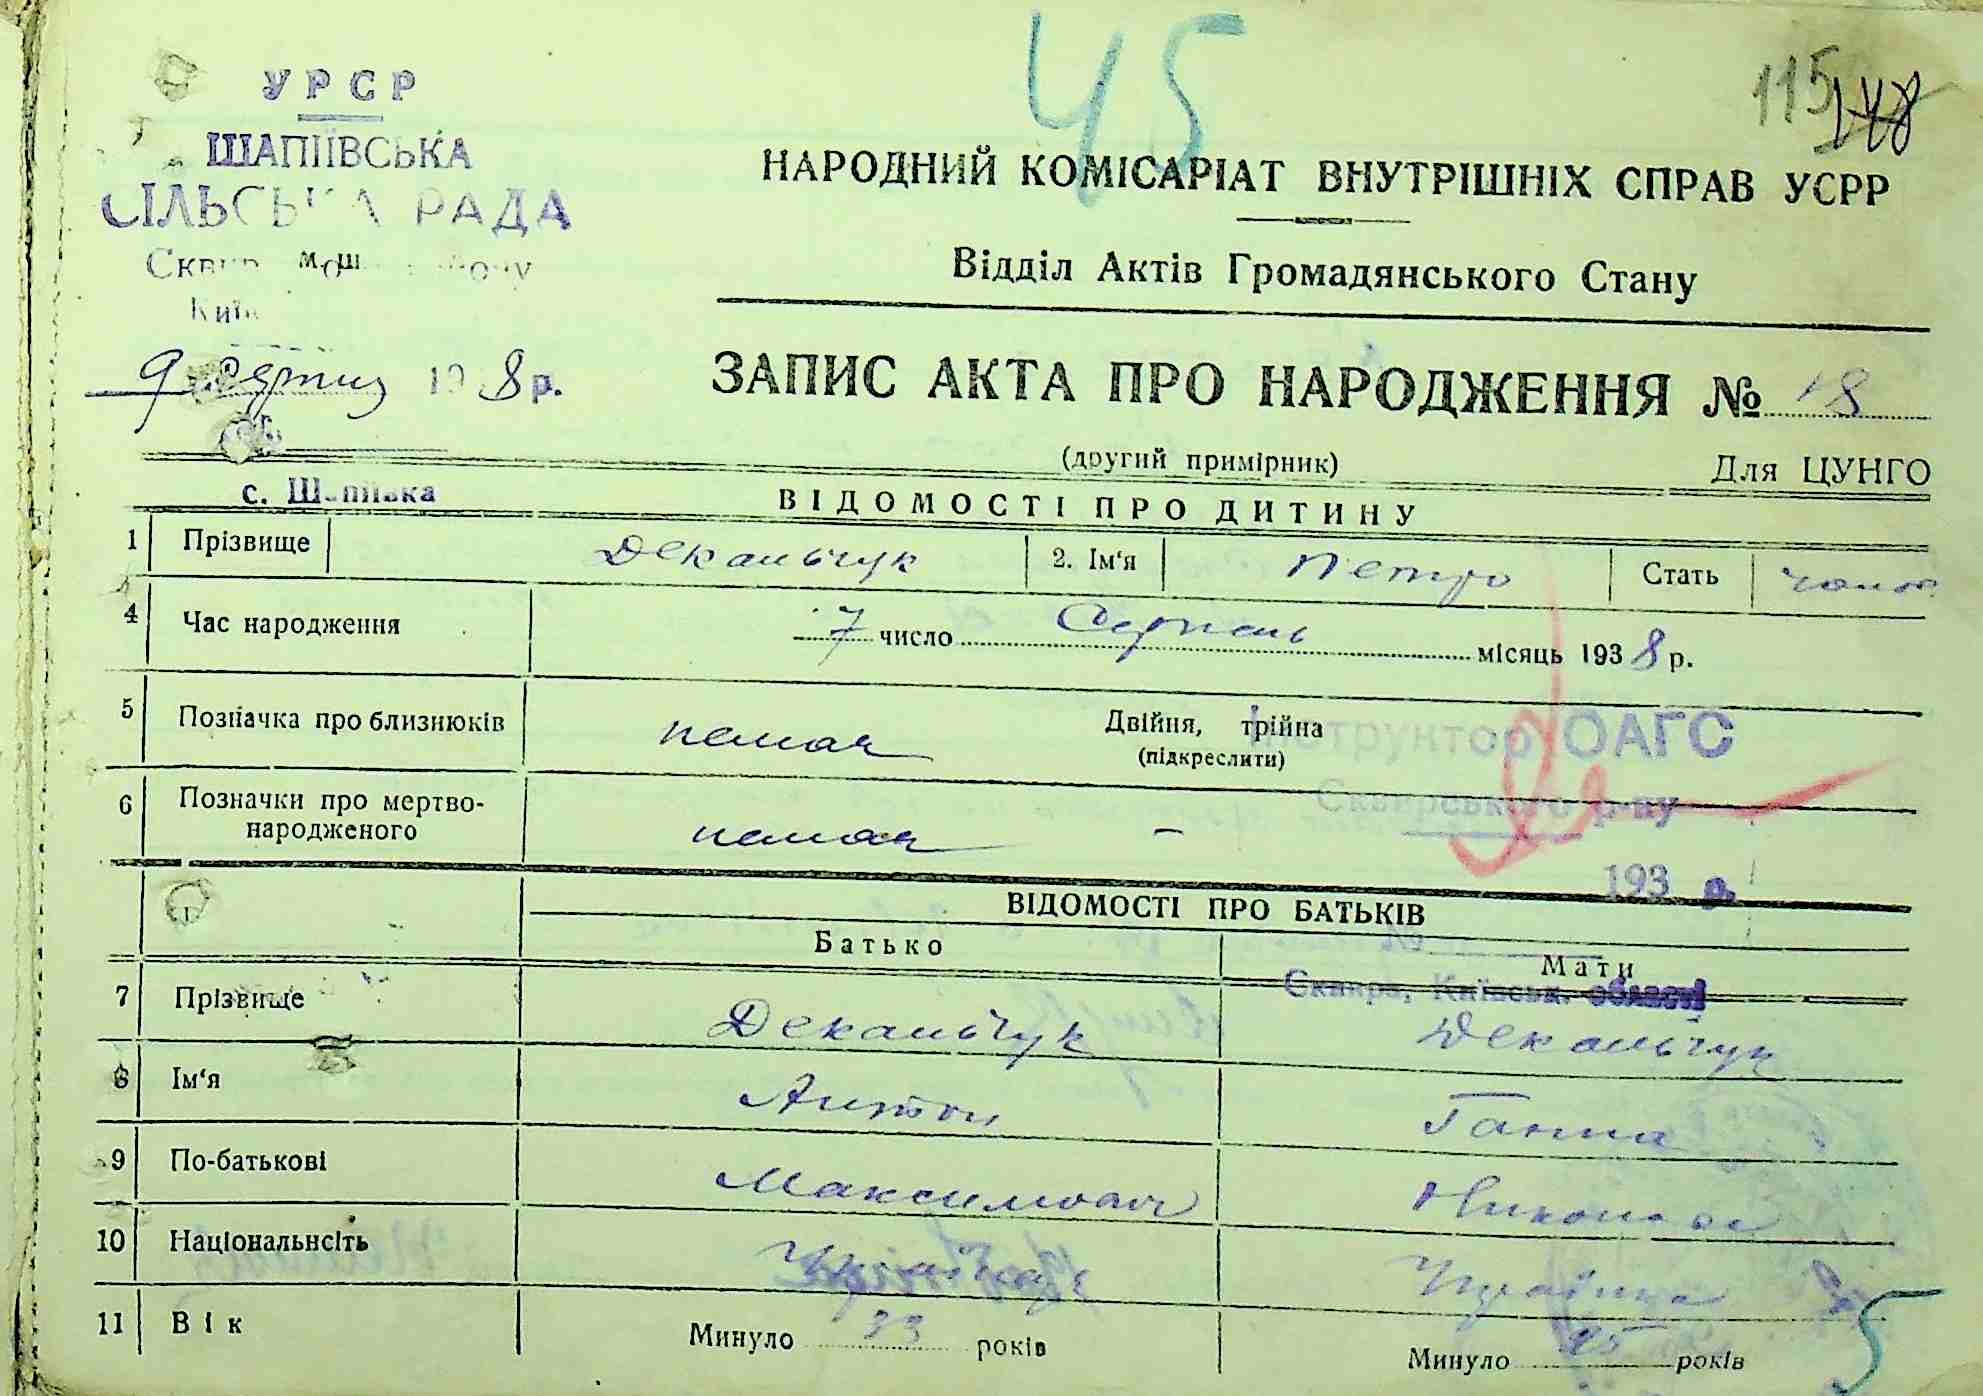 45
115 148
УРСР
ШАПІЇВСЬКА
СІЛЬСЬКА РАДА
НАРОДНИЙ КОМІСАРІАТ ВНУТРІШНІХ СПРАВ УСРР
Відділ Актів Громадянського Стану
9 серпня 1938 р.
ЗАПИС АКТА ПРО НАРОДЖЕННЯ № 18
(другий примірник) Для ЦУНГО
с. Шапіївка
ВІДОМОСТІ ПРО ДИТИНУ
1 Прізвище Декальчук 2. Ім'я Петро Стать чолов
4 Час народження 7 число Серпень місяць 1938 р.
5 Позначка про близнюків немає Двійня, трійна
(підкреслити)
Інструктор ОАГС
6 Позначки про мертво-
народженого немає –
Сквирського р-ну
193 р.
ВІДОМОСТІ ПРО БАТЬКІВ
Батько Мати
Сквира, Київськ. області
7 Прізвище Декальчук Декальчук
8 Ім'я Антон Ганна
9 По-батькові Максимович
10 Національнсіть Українець Українка
11 Вік Минуло 33 років Минуло років
5